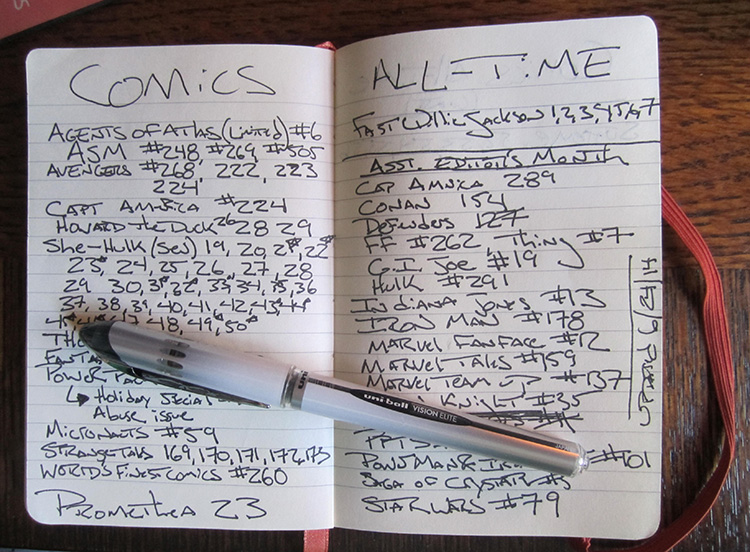 COMICS
AGENTS OF ATLAS (Limited) #6
ASM #248, #269, #505
AVENGERS #268, 222, 223
224
CAPT AMERICA #224
HOWARD the DUCK 26 28 29
She-Hulk (Sev) 19, 20, 21, 22
23, 24, 25, 26, 27, 28
29 30, 31, 32, 33, 34, 35, 36
37, 38, 39, 40, 41, 42, 43, 44
47 48, 49, 50
Holiday Special
Abuse issue
MICRONAUTS #59
STRANGE TALES 169, 170, 171, 172, 173
WORLD'S FINEST COMICS #260
PROMETHEA 23
ALL-TIME
FAST Willie Jackson 1, 2, 3, 4, 5, 6, 7
ASST. EDITOR'S MONTH
CAP AMERICA 289
CONAN 154
Defenders 127
FF #262, Thing #7
G.I. JOE #19
HULK #291
INDIANA JONES #13
IRON MAN #178
MARVEL FANFARE #12
MARVEL TALES #159
MARVEL TEAM UP #137
KNIGHT #35
#101
SAGA OF CRYSTAR #5
STAR WARS #79
uni-ball VISION ELITE